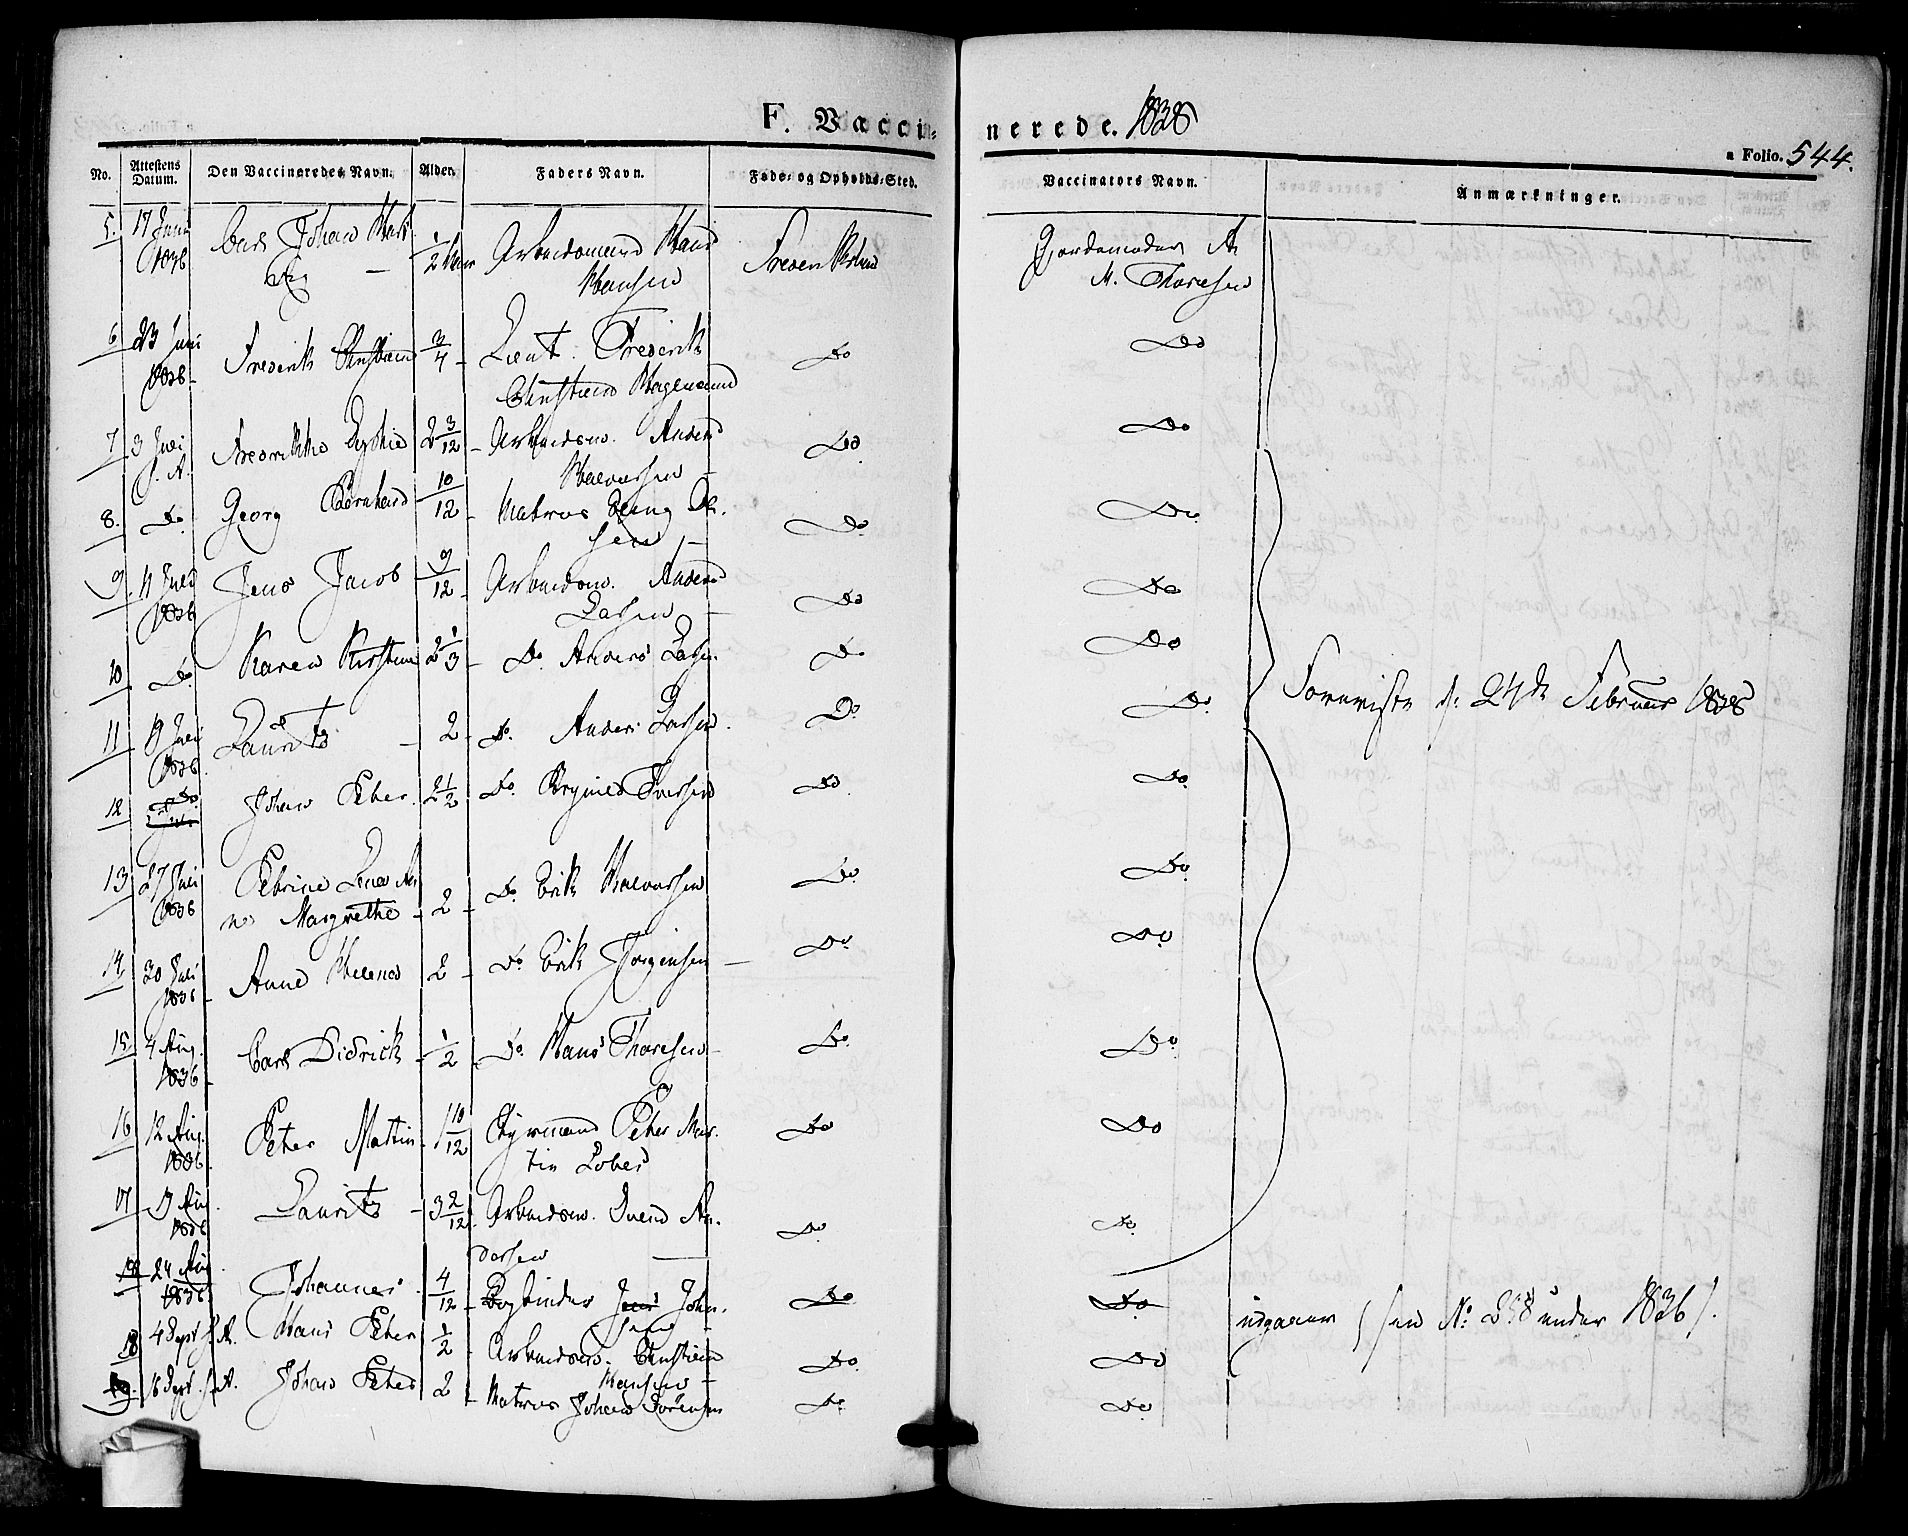 F. Vacci-
nerede. 1838
a Folio. 544.
No. Attestens Datum. Den Vaccineredes Navn. Alder. Faders Navn. Føde- og Opholds-Sted. Vaccinators Navn. Anmærkninger.
5. 17 Juni Carl Johan Arbeidsmand Hans Gjordemoder A.
1836 1/2 Hansen M. Thoresen
6 23 Juni Frederik Christian 3/4 Lieut. Frederik Do Do
1836 Christian Hagemand
7 3 Juli 2 3/12 Arbeidsm. Anders Do Do
f. A. Halvorsen
8. Do Georg Bernhard 10/12 Matros Do Do
sen
9. 11 Juli Jens Jacob 9/12 Arbeidsm. Anders Do Do
1836 Larsen
10 Do Karen Kirstine 2 1/3 Do Anders Larsen Do Do
11 19 Juli Laurits 2 Do Anders Larsen Do Do 24de Februar 1838
1836
12 Do Johan Peter 2 1/2 Do Iversen Do Do
13 27 Juli Petrine Lene An Do Erik Halvorsen Do Do
1836 ne Margrethe 2
14 30 Juli Anne Helene 2 Do Erik Jørgensen Do Do
1836
15 4 Aug. Carl Didrick 1/2 Do Hans Thoresen Do Do
1836
16 12 Aug. Peter Martin 1 10/12 Styrmand Peter Mar- Do Do
1836 tin
17 Aug. Laurits 3 2/12 Arbeidsm. Svend An- Do Do
1836 dersen
18 24 Aug Johannes 4/12 Bogbinder Jens John- Do Do udgaaer (see No. under 1836).
1836 sen
18 4 Sept f. A. Hans Peter 1/2 Arbeidsm. Christian Do Do
Hansen
19. 16 Sept. f. A. Johan Peter 2 Matros Johan Sørensen Do Do